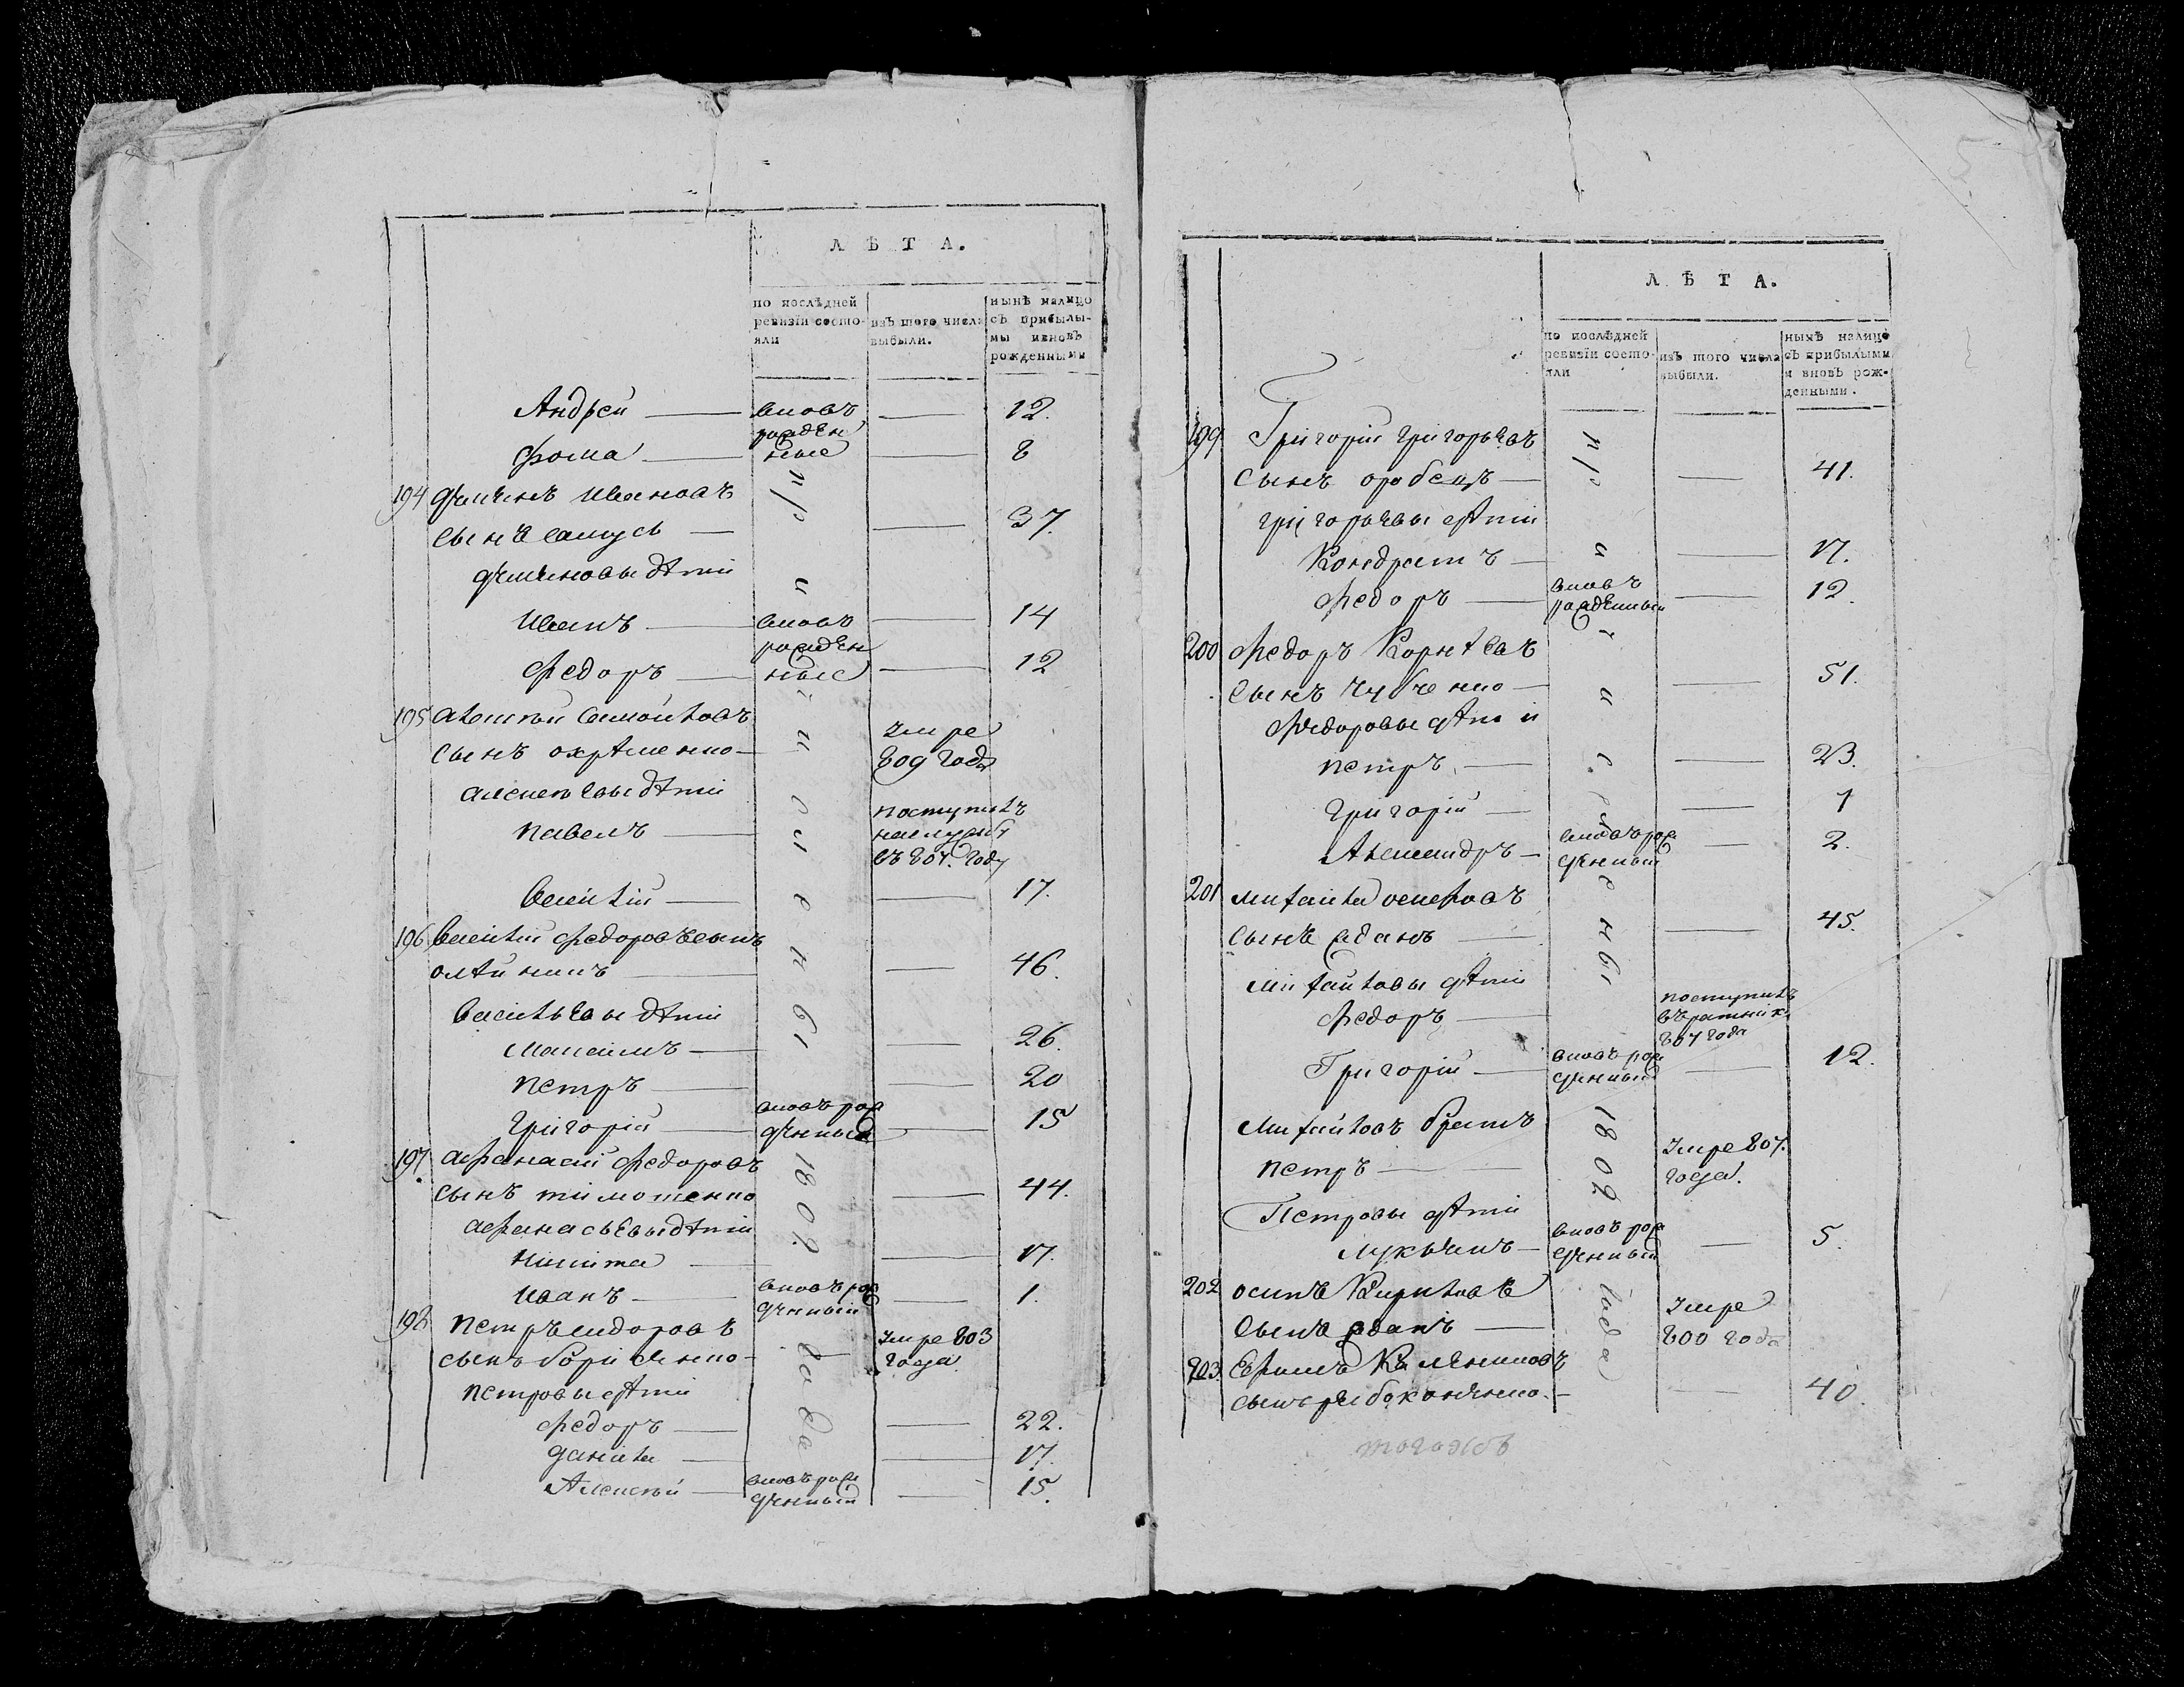 Л Ѣ Т А.
по послѣдней ревизіи состояли
изъ того числа выбыли.
нынѣ налицо съ прибылыми и вновь рожденными
Андрей — вновь — 12.
рожден
Фома — ные — 8
194 Демченъ Ивановъ
сынъ — 37.
Демьяновы дѣти
Иванъ — вновь — 14
рожден
Федоръ — ные — 12
195 Алексѣй Самойловъ умре
сынъ охрѣменко — 809 года
алексѣевы дѣти
Павелъ — поступилъ
на службу
въ 807. году
Василій — 17.
196 Василій Федоровъ сынъ
олѣйникъ — 46.
Васильевы дѣти
Максимъ — 26.
Петръ — 20
Григорій — вновь рож денный — 15
197. афанасій Федоровъ
сынъ тимошенко — 44.
афанасьевы дѣти
Никита — 17.
Иванъ — вновь рож денный — 1.
198 Петръ сидоровъ умре 803
сынъ борисенко — года
Петровы дѣти
Федоръ — 22.
Данила — 17.
Алексѣй — вновь рож денный — 15.
приписенны 1802. года
Л Ѣ Т А.
по послѣдней ревизіи состояли
изъ того числа выбыли.
нынѣ налицо съ прибылыми и вновь рожденными.
199 Григорій григорьевъ
сынъ — 41.
григорьевы дѣти
Кондратъ — 17.
Федоръ — вновь рожденный — 12.
200 Федоръ Корнѣевъ
сынъ чубченко — 51.
Федоровы дѣти
Петръ — 23.
Григорій — 1
Александръ — вновь рож денный — 2.
201 михайла
сынъ — 45.
Михайловы дѣти
Федоръ — поступилъ
въ ратники
807 года
Григорій — вновь рож денный — 12.
Михайловъ братъ
Петръ — умре 807.
года.
Петровы дѣти
Лукьянъ — вновь рож денный — 5.
202 осипъ Кириловъ умре
сынъ — 800 года
203. Ефимъ
сынъ — 40.
приписенны 1802 года